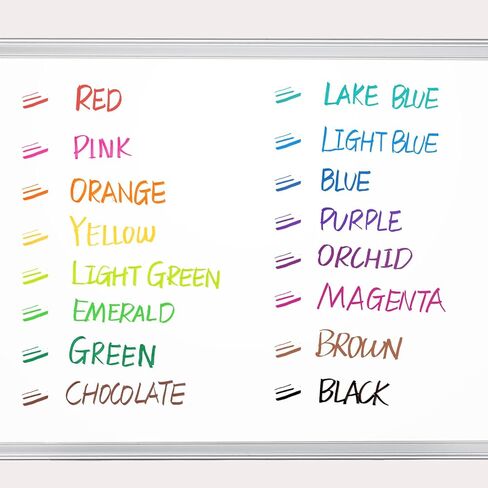 RED
PINK
ORANGE
YELLOW
LIGHT GREEN
EMERALD
GREEN
CHOCOLATE
LAKE BLUE
LIGHT BLUE
BLUE
PURPLE
ORCHID
MAGENTA
BROWN
BLACK